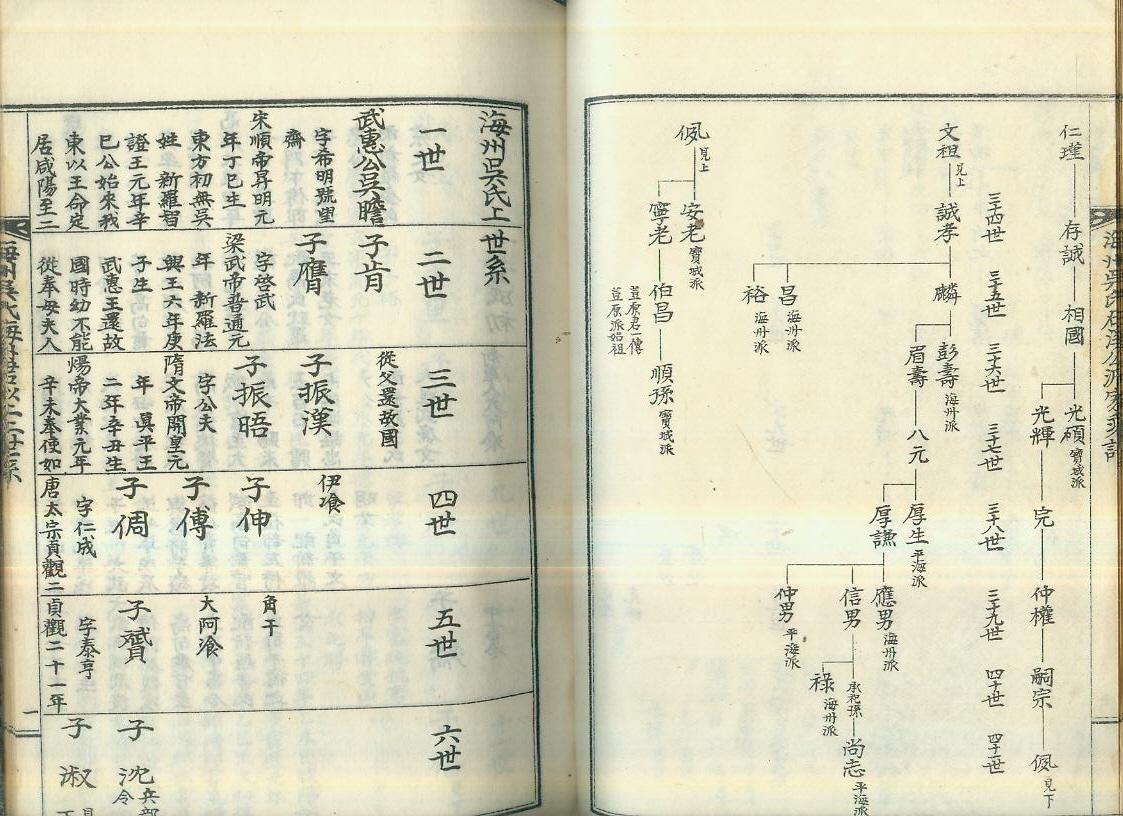 仁瑾
存誠
相國
光碩 寶城派
光輝
完
仲權
嗣宗
佩 見下
三十四世
三十五世
三十六世
三十七世
三十八世
三十九世
四十世
四十一世
文祖 見上
誠孝
麟
彭壽 海州派
眉壽
八元
厚生 平海派
厚謙
應男 海州派
信男
承祀孫
尚志 平海派
祿 海州派
仲男 平海派
昌 海州派
裕 海州派
佩 見上
安老 寶城派
寧老
伯昌
荳原君一傳
荳原派始祖
順孫 寶城派
海州吳氏上
世系
一世
武惠公吳瞻
字希明號望
齋
宋順帝昇明元
年丁巳生
東方初無吳
姓 新羅智
證王元年辛
巳公始來我
東以王命定
居咸陽至二
二世
子肯
子膺
字啓武
梁武帝普通元
年 新羅法
興王六年庚
子生
武惠王還故
國時幼不能
從奉母夫人
三世
從父還故國
子振漢
子振晤
字公夫
隋文帝開皇元
年 眞平王
二年辛丑生
煬帝大業元年
辛未奉使如
四世
伊飡
子伸
子傅
子倜
字仁成
唐太宗貞觀二
五世
角干
大阿飡
子贇
字泰亨
貞觀二十一年
六世
子沈 兵部
令
子淑